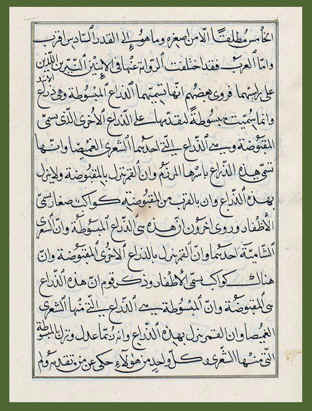 الخامس مطلقا الا من اصغره وما هو الى القدر السادس اقرب
واما العرب فقد اختلفت الرواية عنها فى الاثنين النيرين اللذين
على راسيهما فروى بعضهم انها تسميهما الذراع المبسوطة وهى ذراع الاسد
وانما سميت مبسوطة لتقدمها على الذراع الاخرى الذى تسمى
المقبوضة وتسمى الذراع التى احديهما الشعرى الغميصا وانها
تسمى هذه الذراع باسرها المرزم وان القمر ينزل بالمقبوضة ولا ينزل
بهذه الذراع وان بالقرب من المقبوضة كواكب صغار تسمى
الاظفار وروى اخرون ان هذه هى الذراع المبسوطة وان الشعرى
الشامية احديهما وان القمر ينزل بالذراع الاخرى المقبوضة وان
هناك كواكب تسمى الاظفار وذكر قوم ان هذه الذراع
هى المقبوضة وان المبسوطة هى الذراع التى منها الشعرى
الغميصا وان القمر ينزل بهذه الذراع وانه ربما عدل ونزل بالمبسوطة
التى منها الشعرى وكل واحد من هؤلاء حكى عن من تقدمه ولم